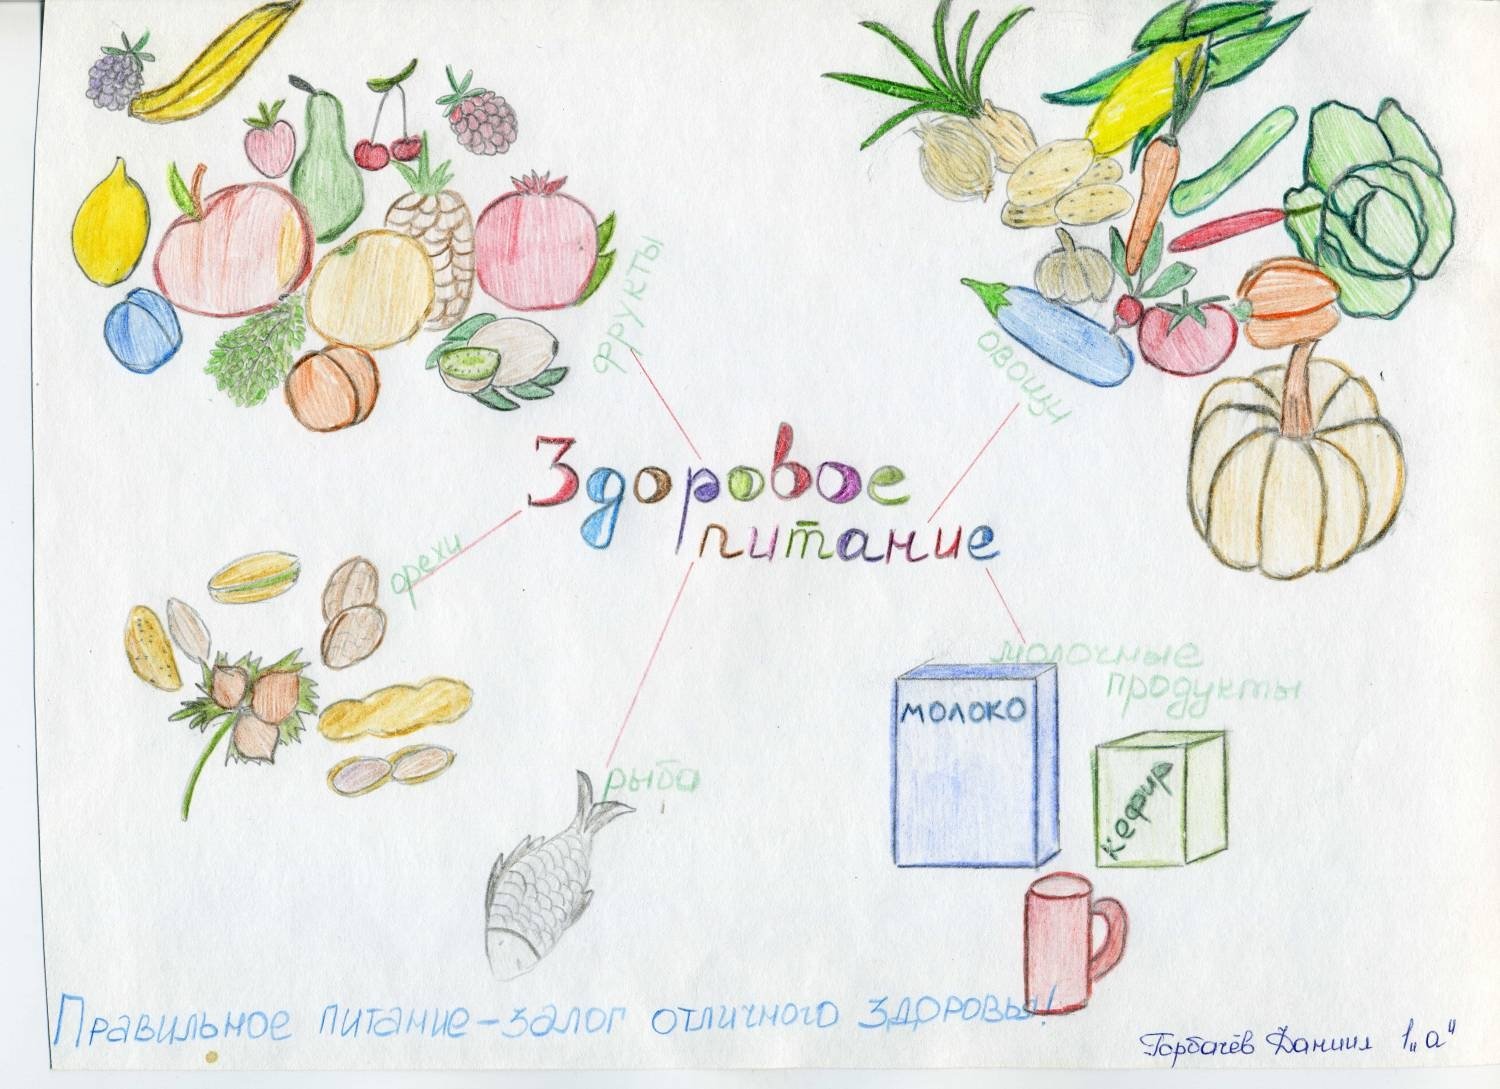 фрукты
овощи
Здоровое
питание
орехи
молочные
продукты
молоко
кефир
рыба
Правильное питание - залог отличного здоровья!
Горбачёв Даниил 1 „а"